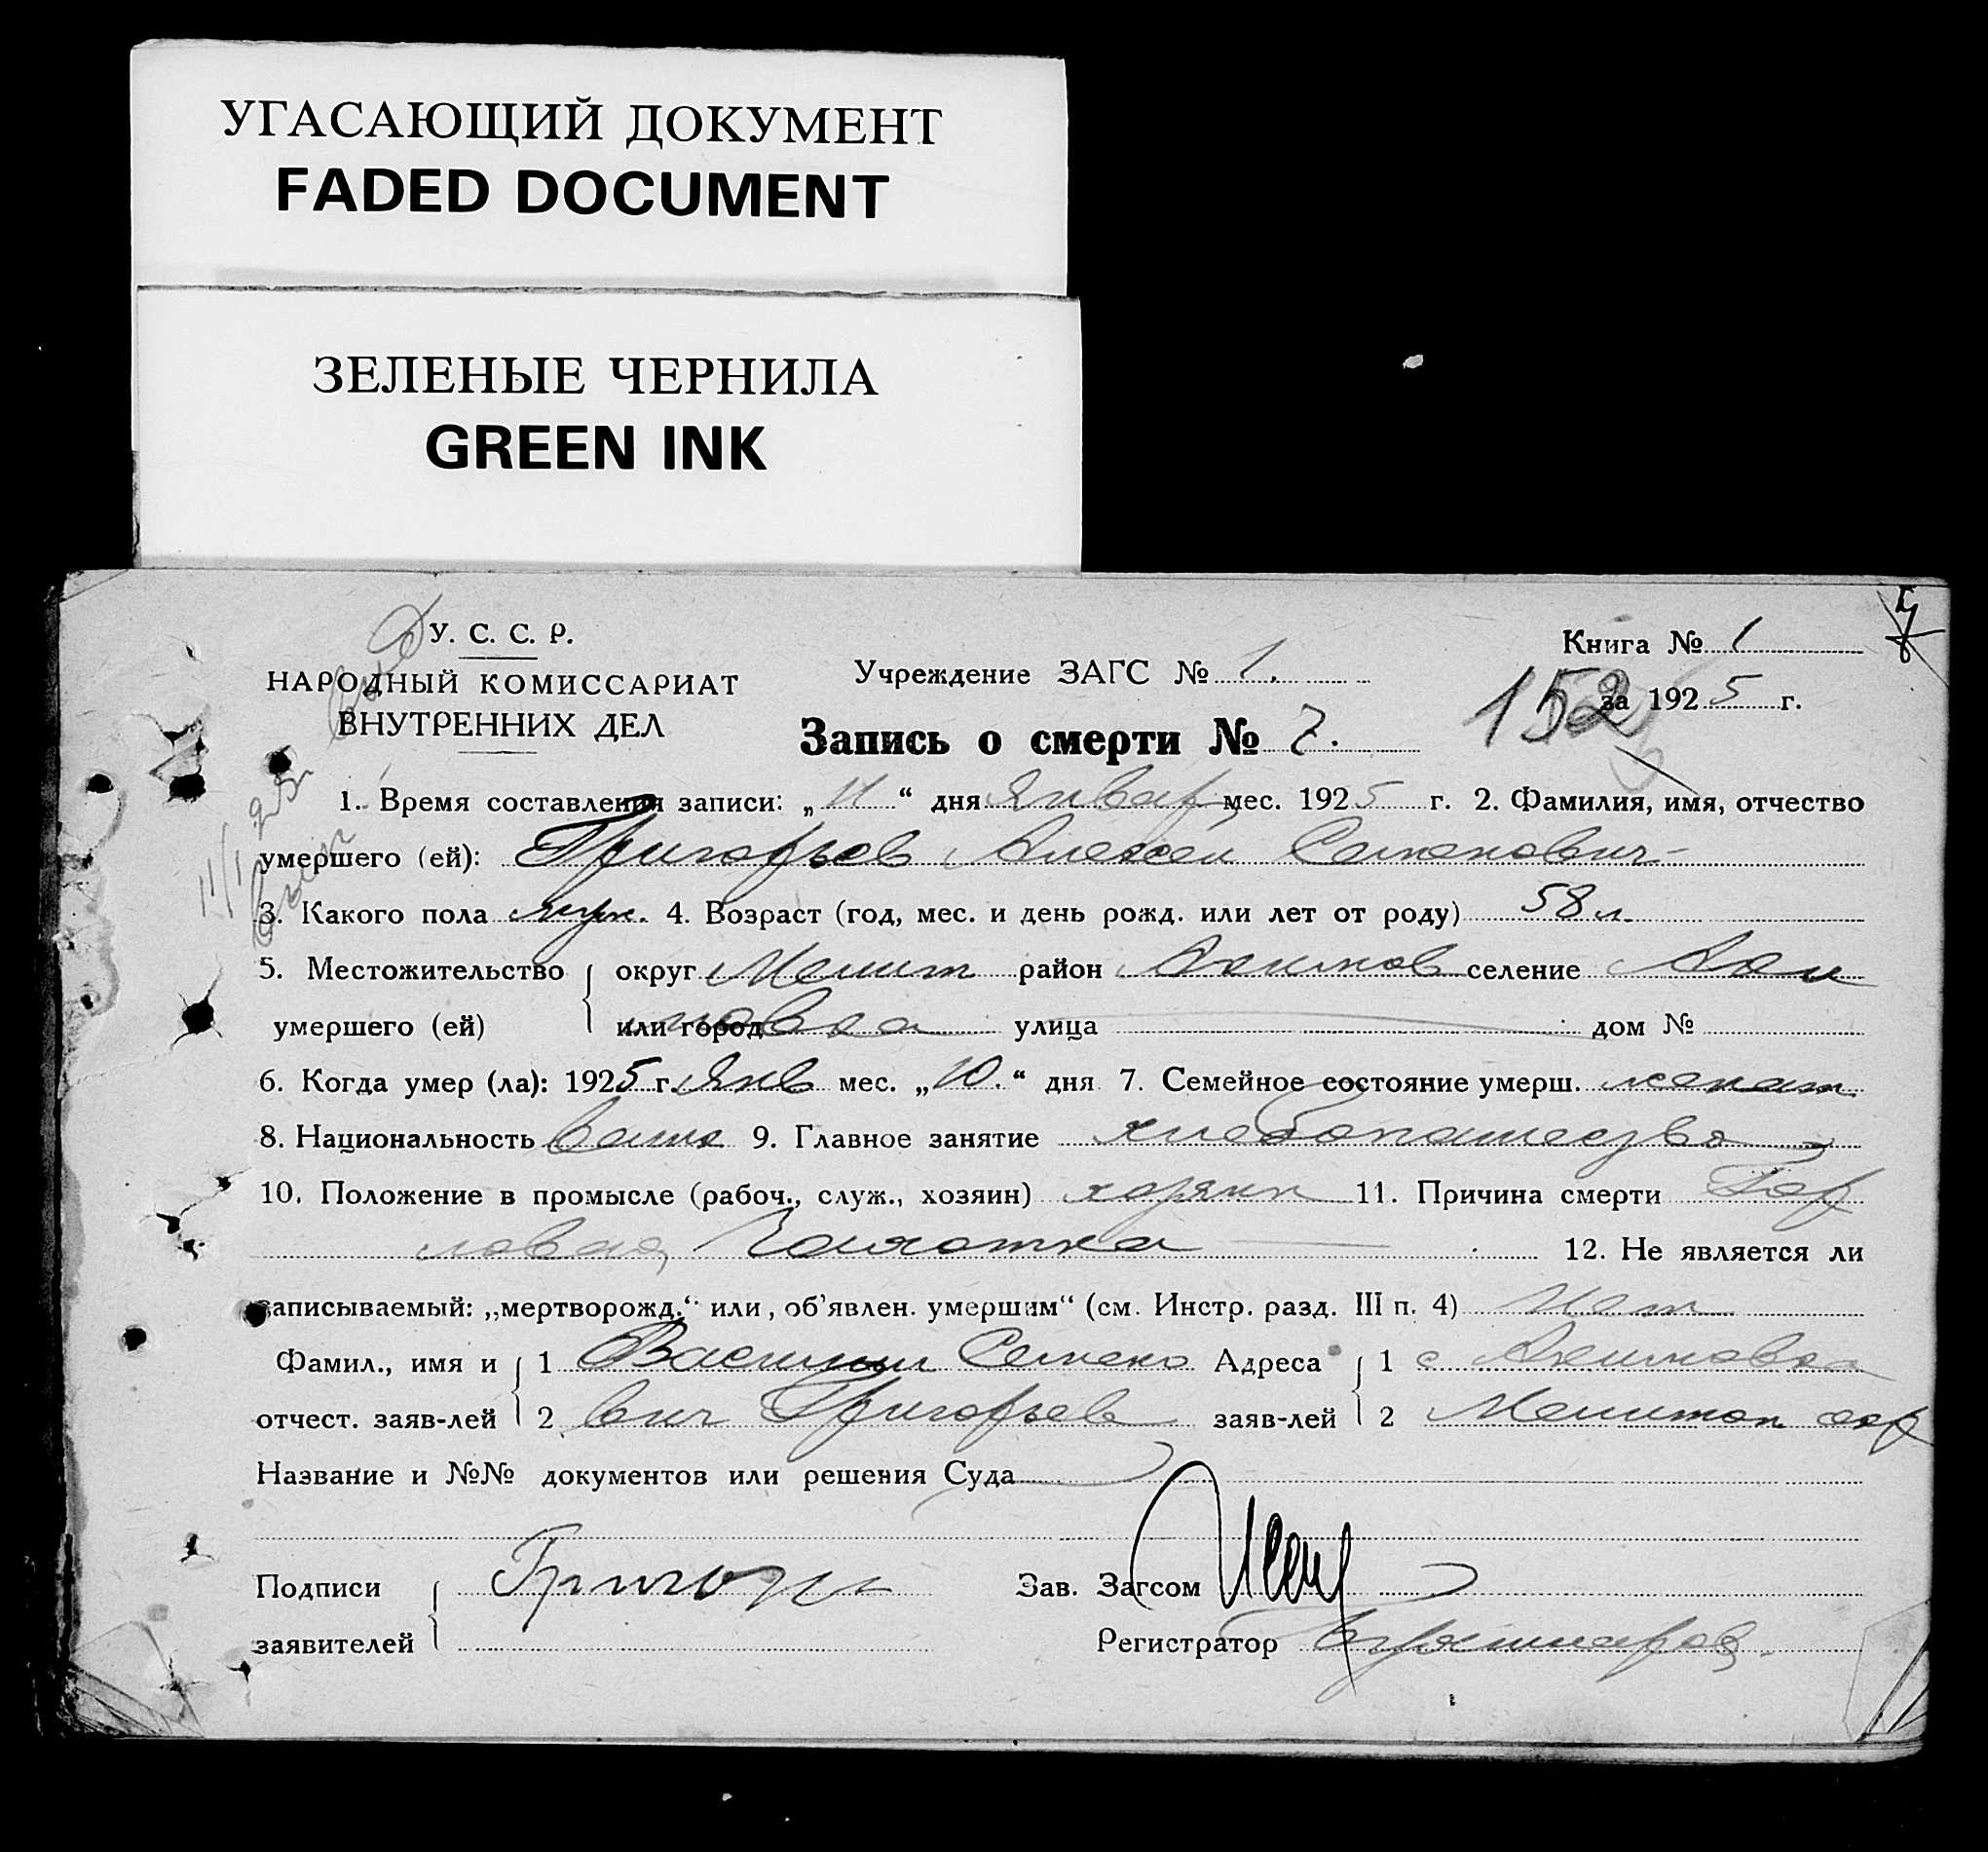 УГАСАЮЩИЙ ДОКУМЕНТ
FADED DOCUMENT
ЗЕЛЕНЫЕ ЧЕРНИЛА
GREEN INK
У. С. С. Р.
НАРОДНЫЙ КОМИССАРИАТ
ВНУТРЕННИХ ДЕЛ
Учреждение ЗАГС № 1.
Книга № 1
за 1925 г.
152
Запись о смерти № 7.
1. Время составления записи: „11“ дня Январ мес. 1925 г. 2. Фамилия, имя, отчество
умершего (ей): Григорьев Алексей Семенович
3. Какого пола муж. 4. Возраст (год, мес. и день рожд. или лет от роду) 58 л.
5. Местожительство округ Мелит район Акимов селение Аки
умершего (ей) или город мовка улица дом №
6. Когда умер (ла): 1925 г. Янв мес. „10.“ дня 7. Семейное состояние умерш. женат
8. Национальность 9. Главное занятие хлебопашество
10. Положение в промысле (рабоч., служ., хозяин) хозяин 11. Причина смерти Гор
ловая Чахотка 12. Не является ли
записываемый: „мертворожд.“ или „об'явлен. умершим“ (см. Инстр. разд. III п. 4) Нет
Фамил., имя и 1 Василий Семено Адреса 1 с Акимовка
отчест. заяв-лей 2 вич Григорьев заяв-лей 2 Мелитоп окр
Название и №№ документов или решения Суда
Подписи Григорьев Зав. Загсом
заявителей Регистратор